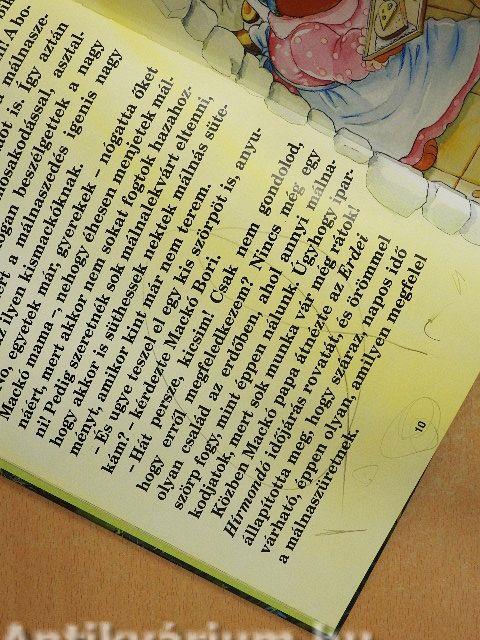 málnasze-
is. Így aztán
mosakodással, asztal-
beszélgettek a nagy
a málnaszedés igenis nagy
ilyen kismackóknak.
egyetek már, gyerekek – nógatta őket
Mackó mama –, nehogy éhesen menjetek mál-
náért, mert akkor nem sokat fogtok hazahoz-
ni! Pedig szeretnék sok málnalekvárt eltenni,
hogy akkor is süthessek nektek málnás süte-
ményt, amikor kint már nem terem.
– És ugye teszel el egy kis szörpöt is, anyu-
kám? – kérdezte Mackó Bori.
– Hát persze, kicsim! Csak nem gondolod,
hogy erről megfeledkezem? Nincs még egy
olyan család az erdőben, ahol annyi málna-
szörp fogy, mint éppen nálunk. Úgyhogy ipar-
kodjatok, mert sok munka vár még rátok!
Közben Mackó papa átnézte az Erdei
Hírmondó időjárás rovatát, és örömmel
állapította meg, hogy száraz, napos idő
várható, éppen olyan, amilyen megfelel
a málnaszüretnek.
10
Antikvárium.hu